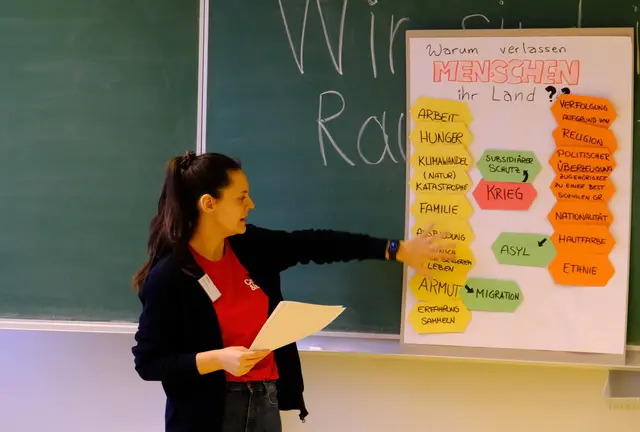 Wir
Rac
Warum verlassen
MENSCHEN
ihr Land ??
ARBEIT
HUNGER
KLIMAWANDEL
(NATUR)
KATASTROPHE
FAMILIE
AUSBILDUNG
LEBEN
ARMUT
ERFAHRUNG
SAMMELN
SUBSIDIÄRER
SCHUTZ
KRIEG
ASYL
MIGRATION
VERFOLGUNG
AUFGRUND VON
RELIGION
POLITISCHER
ÜBERZEUGUNG
ZUGEHÖRIGKEIT
ZU EINER BEST.
SOZIALEN GR.
NATIONALITÄT
HAUTFARBE
ETHNIE